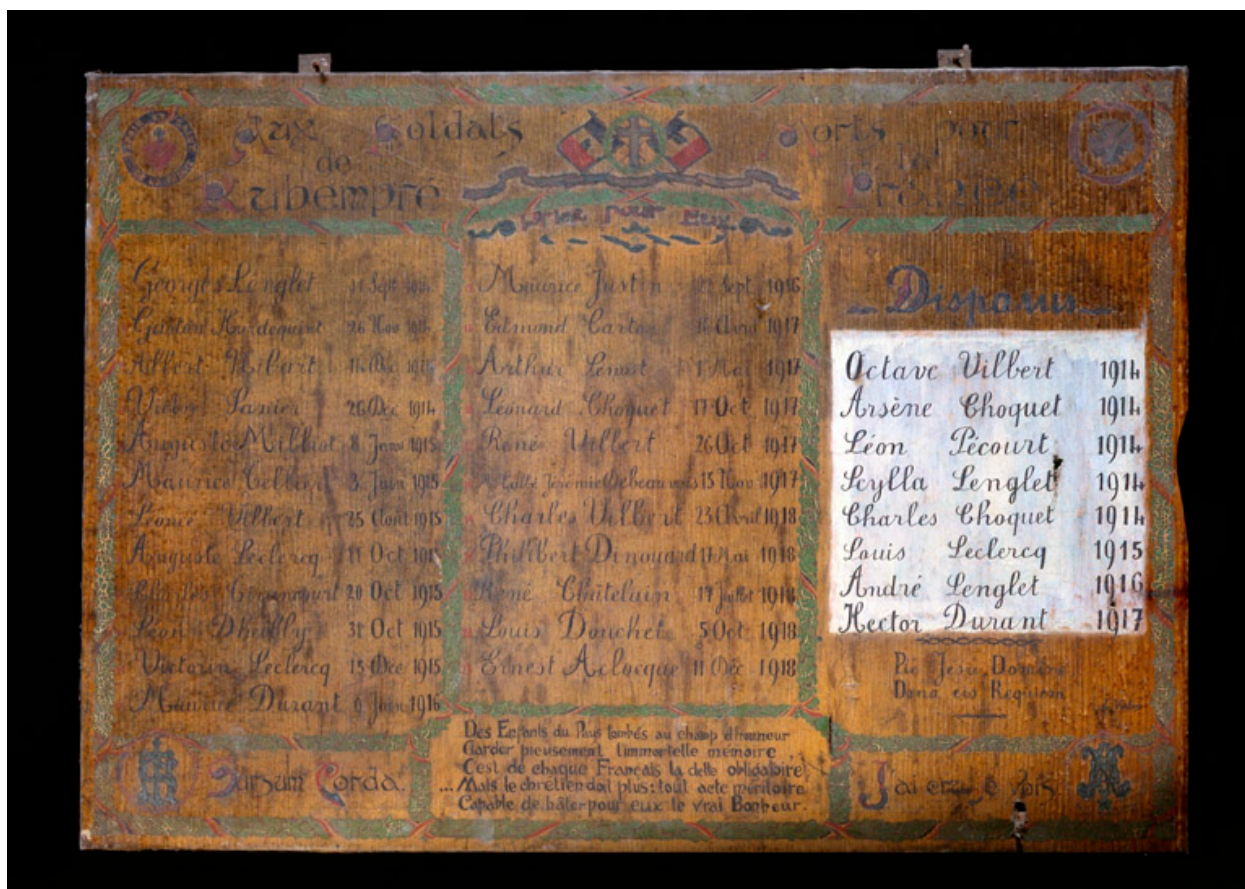 Aux Soldats Morts pour
de la
Rubempré France
Prier pour Eux
Georges Lenglet Sept
26 Nov
Albert
26 Déc 1914
Auguste 8 Janv 1915
Maurice 3 Juin 1915
Léonce Vilbert 25 Août 1915
Auguste Leclercq 11 Oct 1915
20 Oct 1915
Léon Dheilly 31 Oct 1915
Victorin Leclercq 15 Déc 1915
Maurice Durant 9 Juin 1916
Maurice Justin 22 Sept 1916
Edmond Carton 16 Avril 1917
Arthur 1 Mai 1917
Léonard Choquet 17 Oct 1917
René Vilbert 26 Oct 1917
Jérémie Debeauvais 15 Nov 1917
Charles Vilbert 23 Avril 1918
Philibert Dinouard 17 Mai 1918
René Châtelain 17 Juillet 1918
Louis Douchet 5 Oct 1918
Ernest Aclocque 11 Déc 1918
Disparus
Octave Vilbert 1914
Arsène Choquet 1914
Léon Pécourt 1914
Scylla Lenglet 1914
Charles Choquet 1914
Louis Leclercq 1915
André Lenglet 1916
Hector Durant 1917
Pie Jesu Domine
Dona eis Requiem
Sursum Corda.
Des Enfants du Pays tombés au champ d'honneur
Garder pieusement l'immortelle mémoire
C'est de chaque Français la dette obligatoire;
... Mais le chrétien doit plus: tout acte méritoire
Capable de hâter pour eux le vrai Bonheur.
J'ai cru, je vois